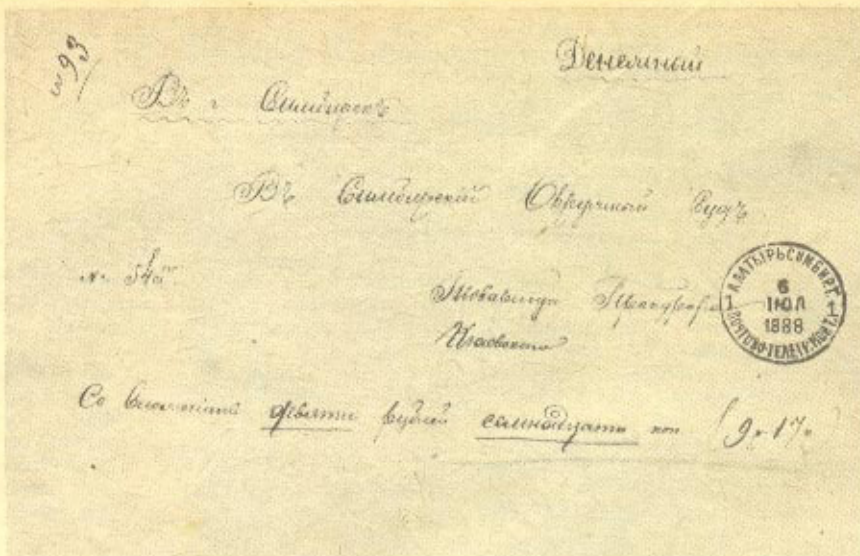 № 93
Денежный
Въ г. Симбирскъ
Въ Симбирскій Окружный Судъ
№ 54
Товарища Прокурора
Со вложеніемъ девяти рублей семнадцати коп (9 р 17 к)
АЛАТЫРЬ СИМБИРГ.
6
ІЮЛ
1888
1 1
ПОЧТОВО-ТЕЛЕГР. КОНТ.